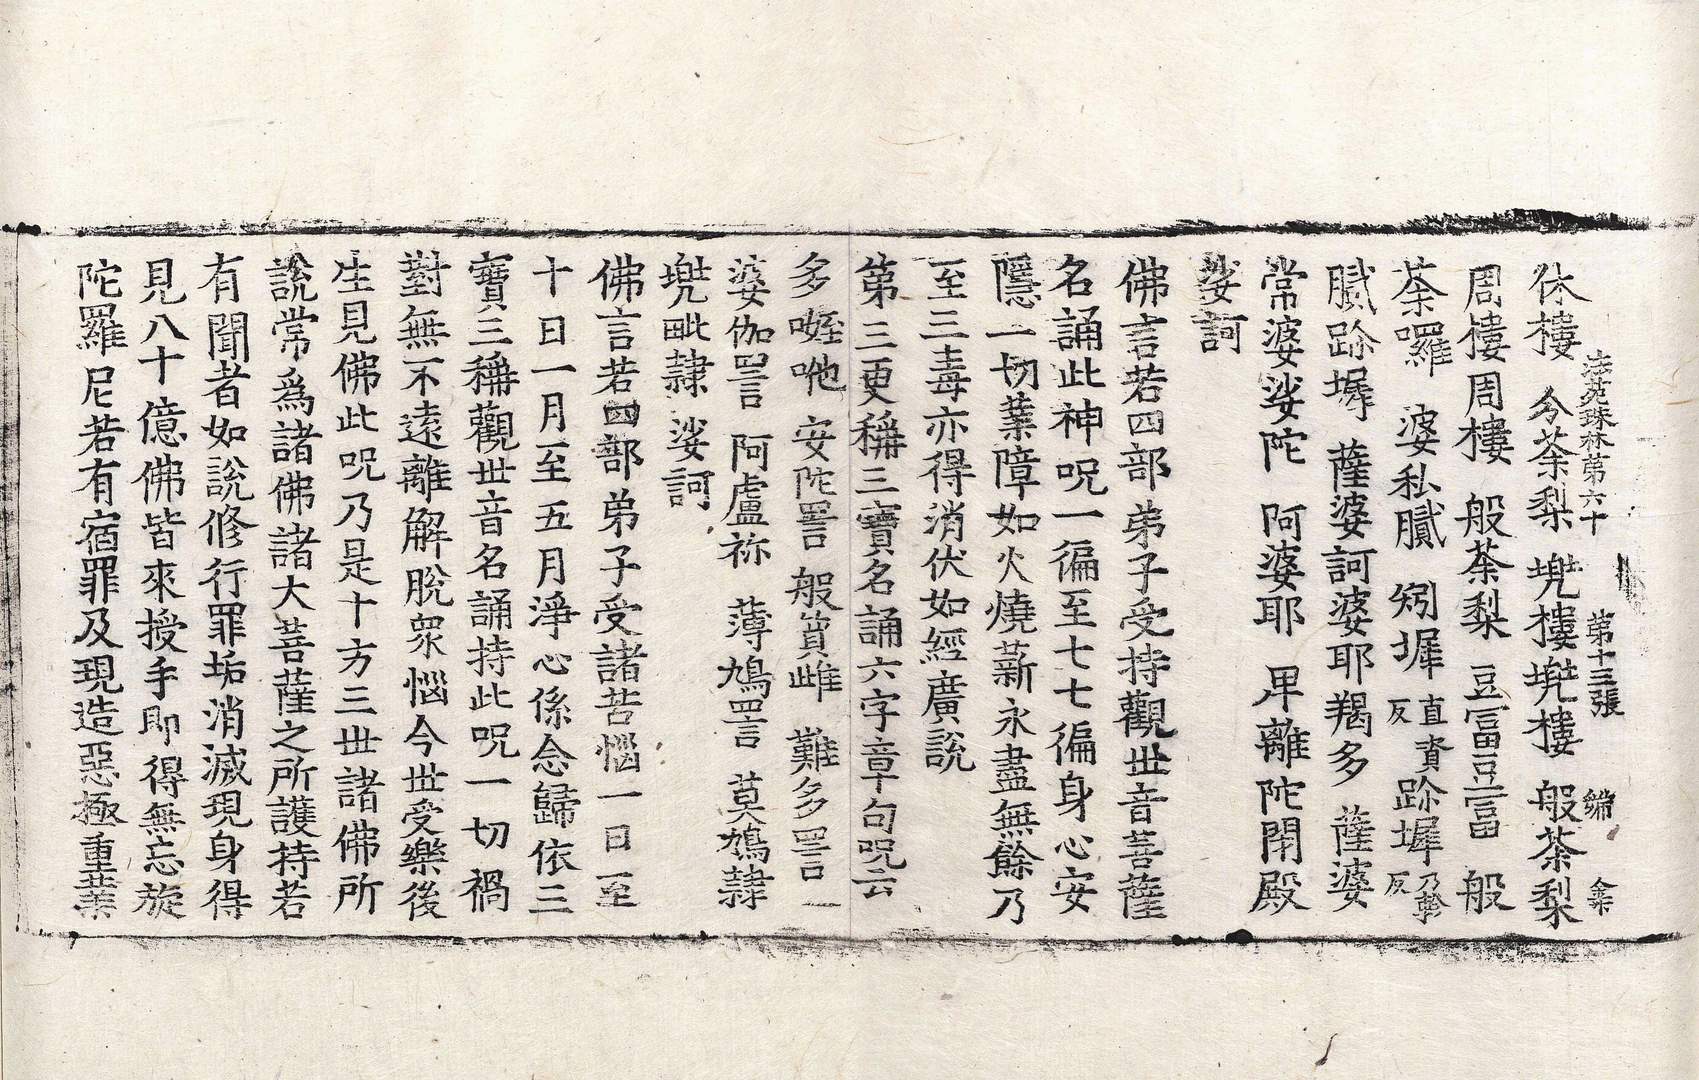 法苑珠林第六十 第十三張 緜
休樓 分荼梨 兠樓兠樓 般荼梨
周樓周樓 般荼梨 豆富豆富 般
荼囉 婆私膩 矧墀直資反 跢墀乃軫反
膩跢墀 薩婆訶婆耶羯多 薩婆
常婆娑陀 阿婆耶 卑離陀閉殿
娑訶
佛言若四部弟子受持觀世音菩薩
名誦此神呪一徧至七七徧身心安
隱一切業障如火燒薪永盡無餘乃
至三毒亦得消伏如經廣說
第三更稱三寶名誦六字章句呪云
多㘑咃 安陀詈 般質雌 難多詈 一
婆伽詈 阿盧祢 薄鳩詈 莫鳩隷
兠毗隷 娑訶
佛言若四部弟子受諸苦惱一日至
十日一月至五月淨心係念歸依三
寶三稱觀世音名誦持此呪一切禍
對無不遠離解脫衆惱今世受樂後
生見佛此呪乃是十方三世諸佛所
說常爲諸佛諸大菩薩之所護持若
有聞者如說修行罪垢消滅現身得
見八十億佛皆來授手即得無忘旋
陀羅尼若有宿罪及現造惡極重業